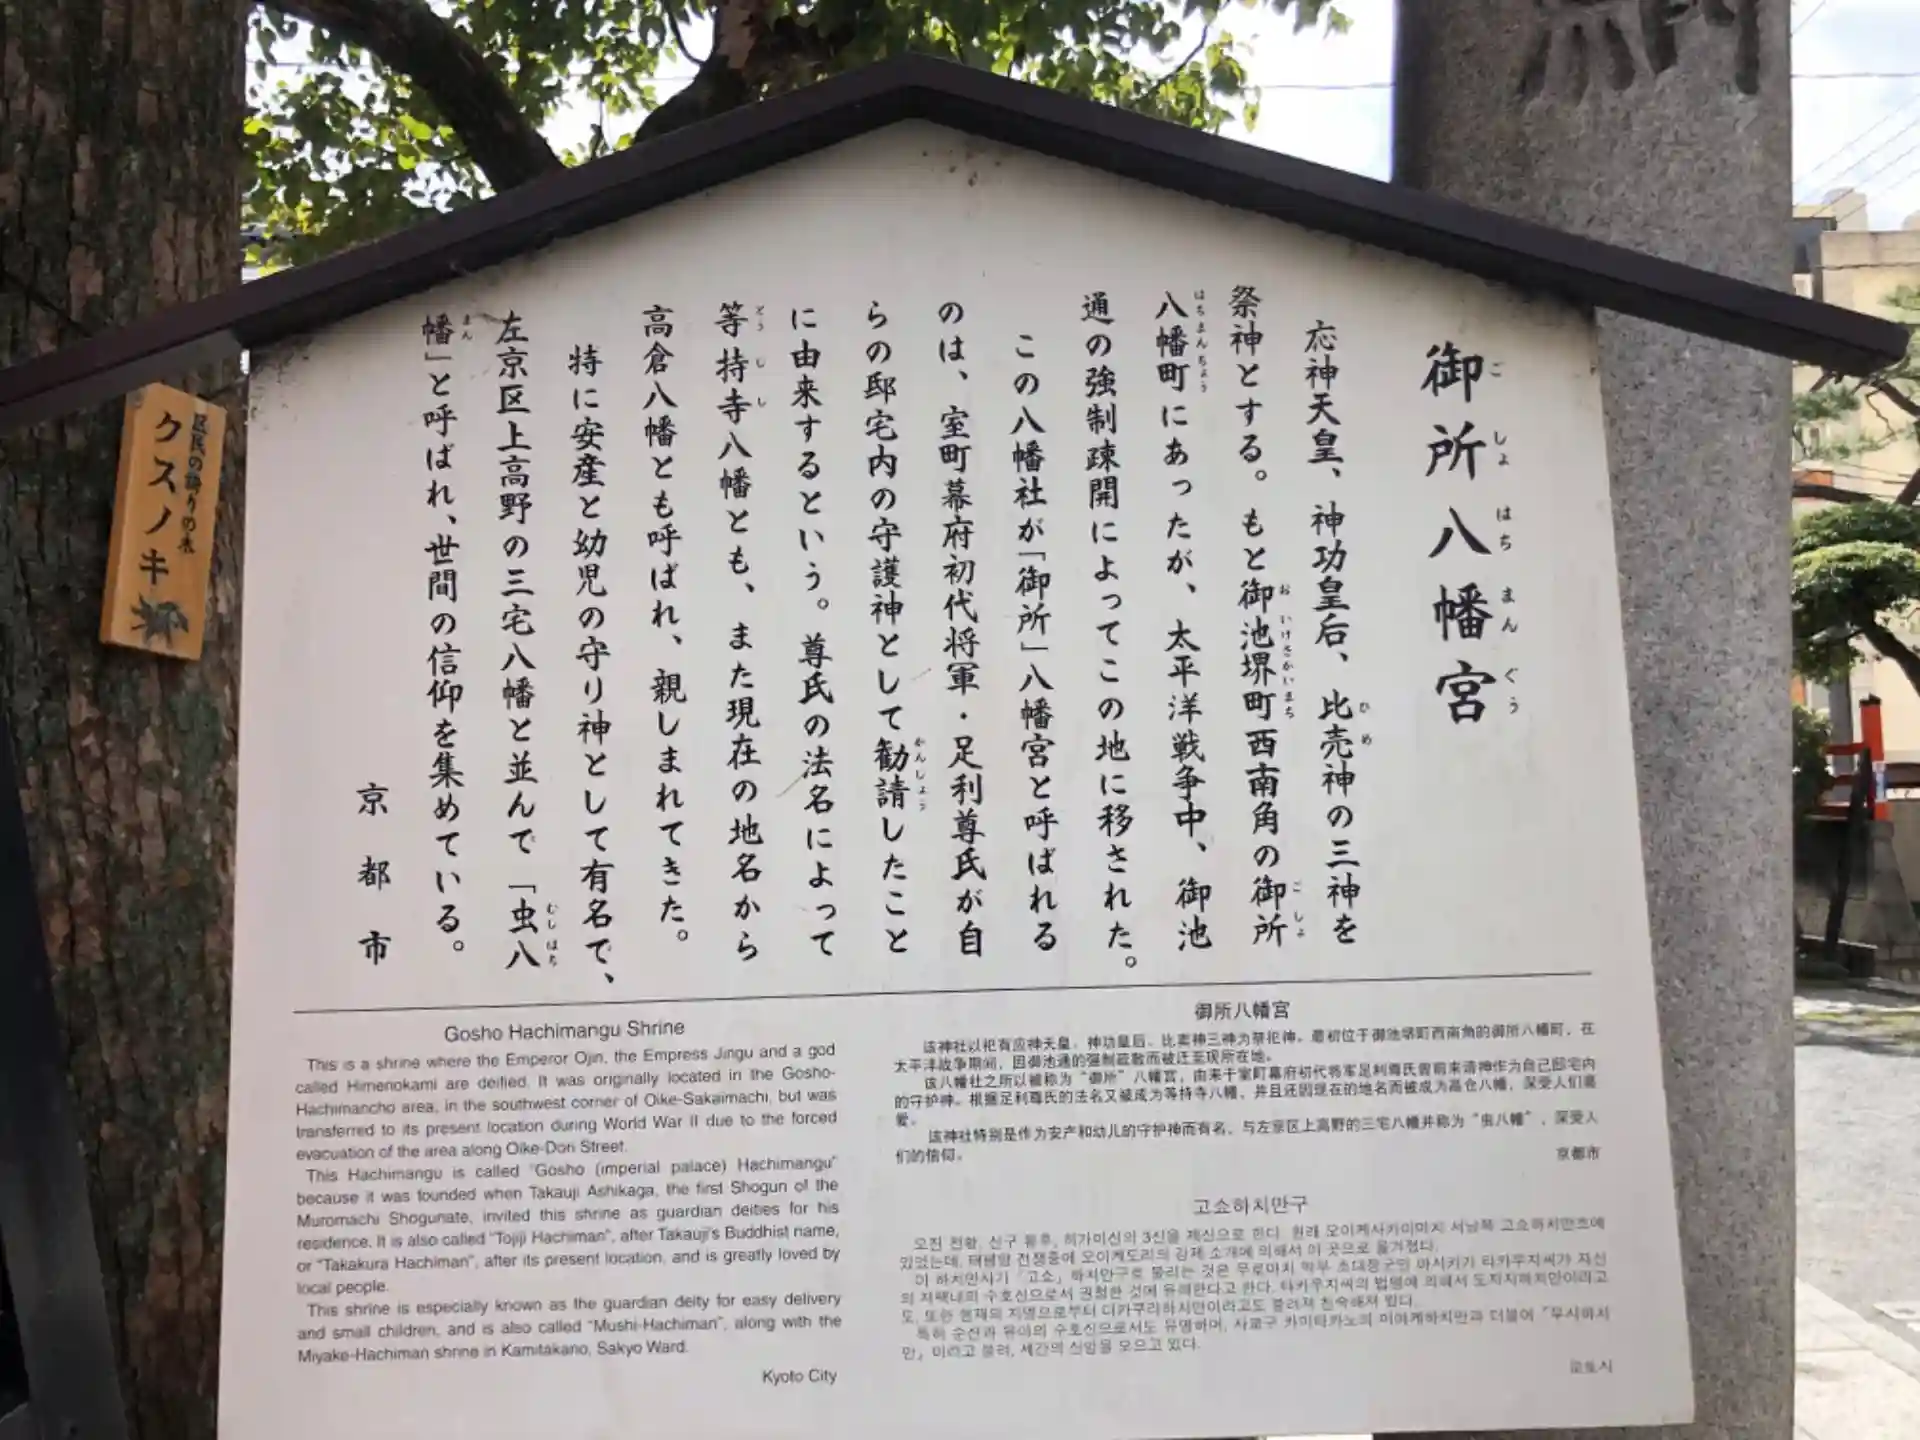 御所八幡宮
ごしょはちまんぐう
応神天皇、神功皇后、比売神の三神を
祭神とする。もと御池堺町西南角の御所
八幡町にあったが、太平洋戦争中、御池
通の強制疎開によってこの地に移された。
この八幡社が「御所」八幡宮と呼ばれる
のは、室町幕府初代将軍・足利尊氏が自
らの邸宅内の守護神として勧請したこと
に由来するという。尊氏の法名によって
等持寺八幡とも、また現在の地名から
高倉八幡とも呼ばれ、親しまれてきた。
特に安産と幼児の守り神として有名で、
左京区上高野の三宅八幡と並んで「虫八
幡」と呼ばれ、世間の信仰を集めている。
京都市
区民の誇りの木
クスノキ
Gosho Hachimangu Shrine
This is a shrine where the Emperor Ojin, the Empress Jingu and a god
called Himenokami are deified. It was originally located in the Gosho-
Hachimancho area, in the southwest corner of Oike-Sakaimachi, but was
transferred to its present location during World War II due to the forced
evacuation of the area along Oike-Dori Street.
This Hachimangu is called "Gosho (imperial palace) Hachimangu"
because it was founded when Takauji Ashikaga, the first Shogun of the
Muromachi Shogunate, invited this shrine as guardian deities for his
residence. It is also called "Tojiji Hachiman", after Takauji's Buddhist name,
or "Takakura Hachiman", after its present location, and is greatly loved by
local people.
This shrine is especially known as the guardian deity for easy delivery
and small children, and is also called "Mushi-Hachiman", along with the
Miyake-Hachiman shrine in Kamitakano, Sakyo Ward.
Kyoto City
御所八幡宮
该神社以祀有应神天皇、神功皇后、比卖神三神为祭祀神。最初位于御池堺町西南角的御所八幡町，在
太平洋战争期间，因御池通的强制疏散而被迁至现所在地。
该八幡社之所以被称为“御所”八幡宫，由来于室町幕府初代将军足利尊氏曾前来请神作为自己邸宅内
的守护神。根据足利尊氏的法名又被成为等持寺八幡，并且还因现在的地名而被成为高仓八幡，深受人们喜
爱。
该神社特别是作为安产和幼儿的守护神而有名，与左京区上高野的三宅八幡并称为“虫八幡”，深受人
们的信仰。
京都市
고쇼하치만구
오진 천황, 신구 황후, 히가미신의 3신을 제신으로 한다. 원래 오이케사카이마치 서남쪽 고쇼하치만쵸에
있었는데, 태평양 전쟁중에 오이케도리의 강제 소개에 의해서 이 곳으로 옮겨졌다.
이 하치만사가 「고쇼」하치만구로 불리는 것은 무로마치 막부 초대장군인 아시카가 타카우지씨가 자신
의 저택내의 수호신으로서 권청한 것에 유래한다고 한다. 타카우지씨의 법명에 의해서 도지지하치만이라고
도, 또한 현재의 지명으로부터 다카쿠라하치만이라고도 불려져 친숙해져 왔다.
특히 순산과 유아의 수호신으로서도 유명하며, 사쿄구 카미타카노의 미야케하치만과 더불어 「무시하치
만」이라고 불려, 세간의 신앙을 모으고 있다.
교토시